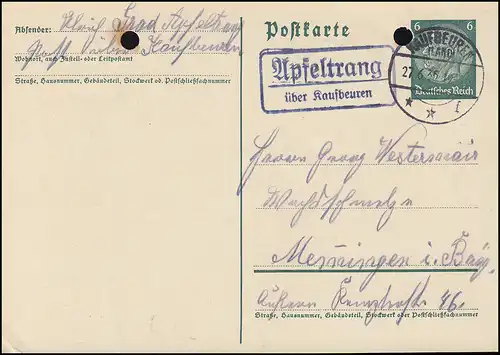 Absender:
Post über Kaufbeuren
Wohnort, auch Zustell- oder Leitpostamt
Straße, Hausnummer, Gebäudeteil, Stockwerk od. Postschließfachnummer
Postkarte
6 6
Deutsches Reich
KAUFBEUREN
(LAND)
f
Apfeltrang
über Kaufbeuren
Herrn Georg Westermair
Memmingen i. Bay.
46.
Straße, Hausnummer, Gebäudeteil, Stockwerk oder Postschließfachnummer